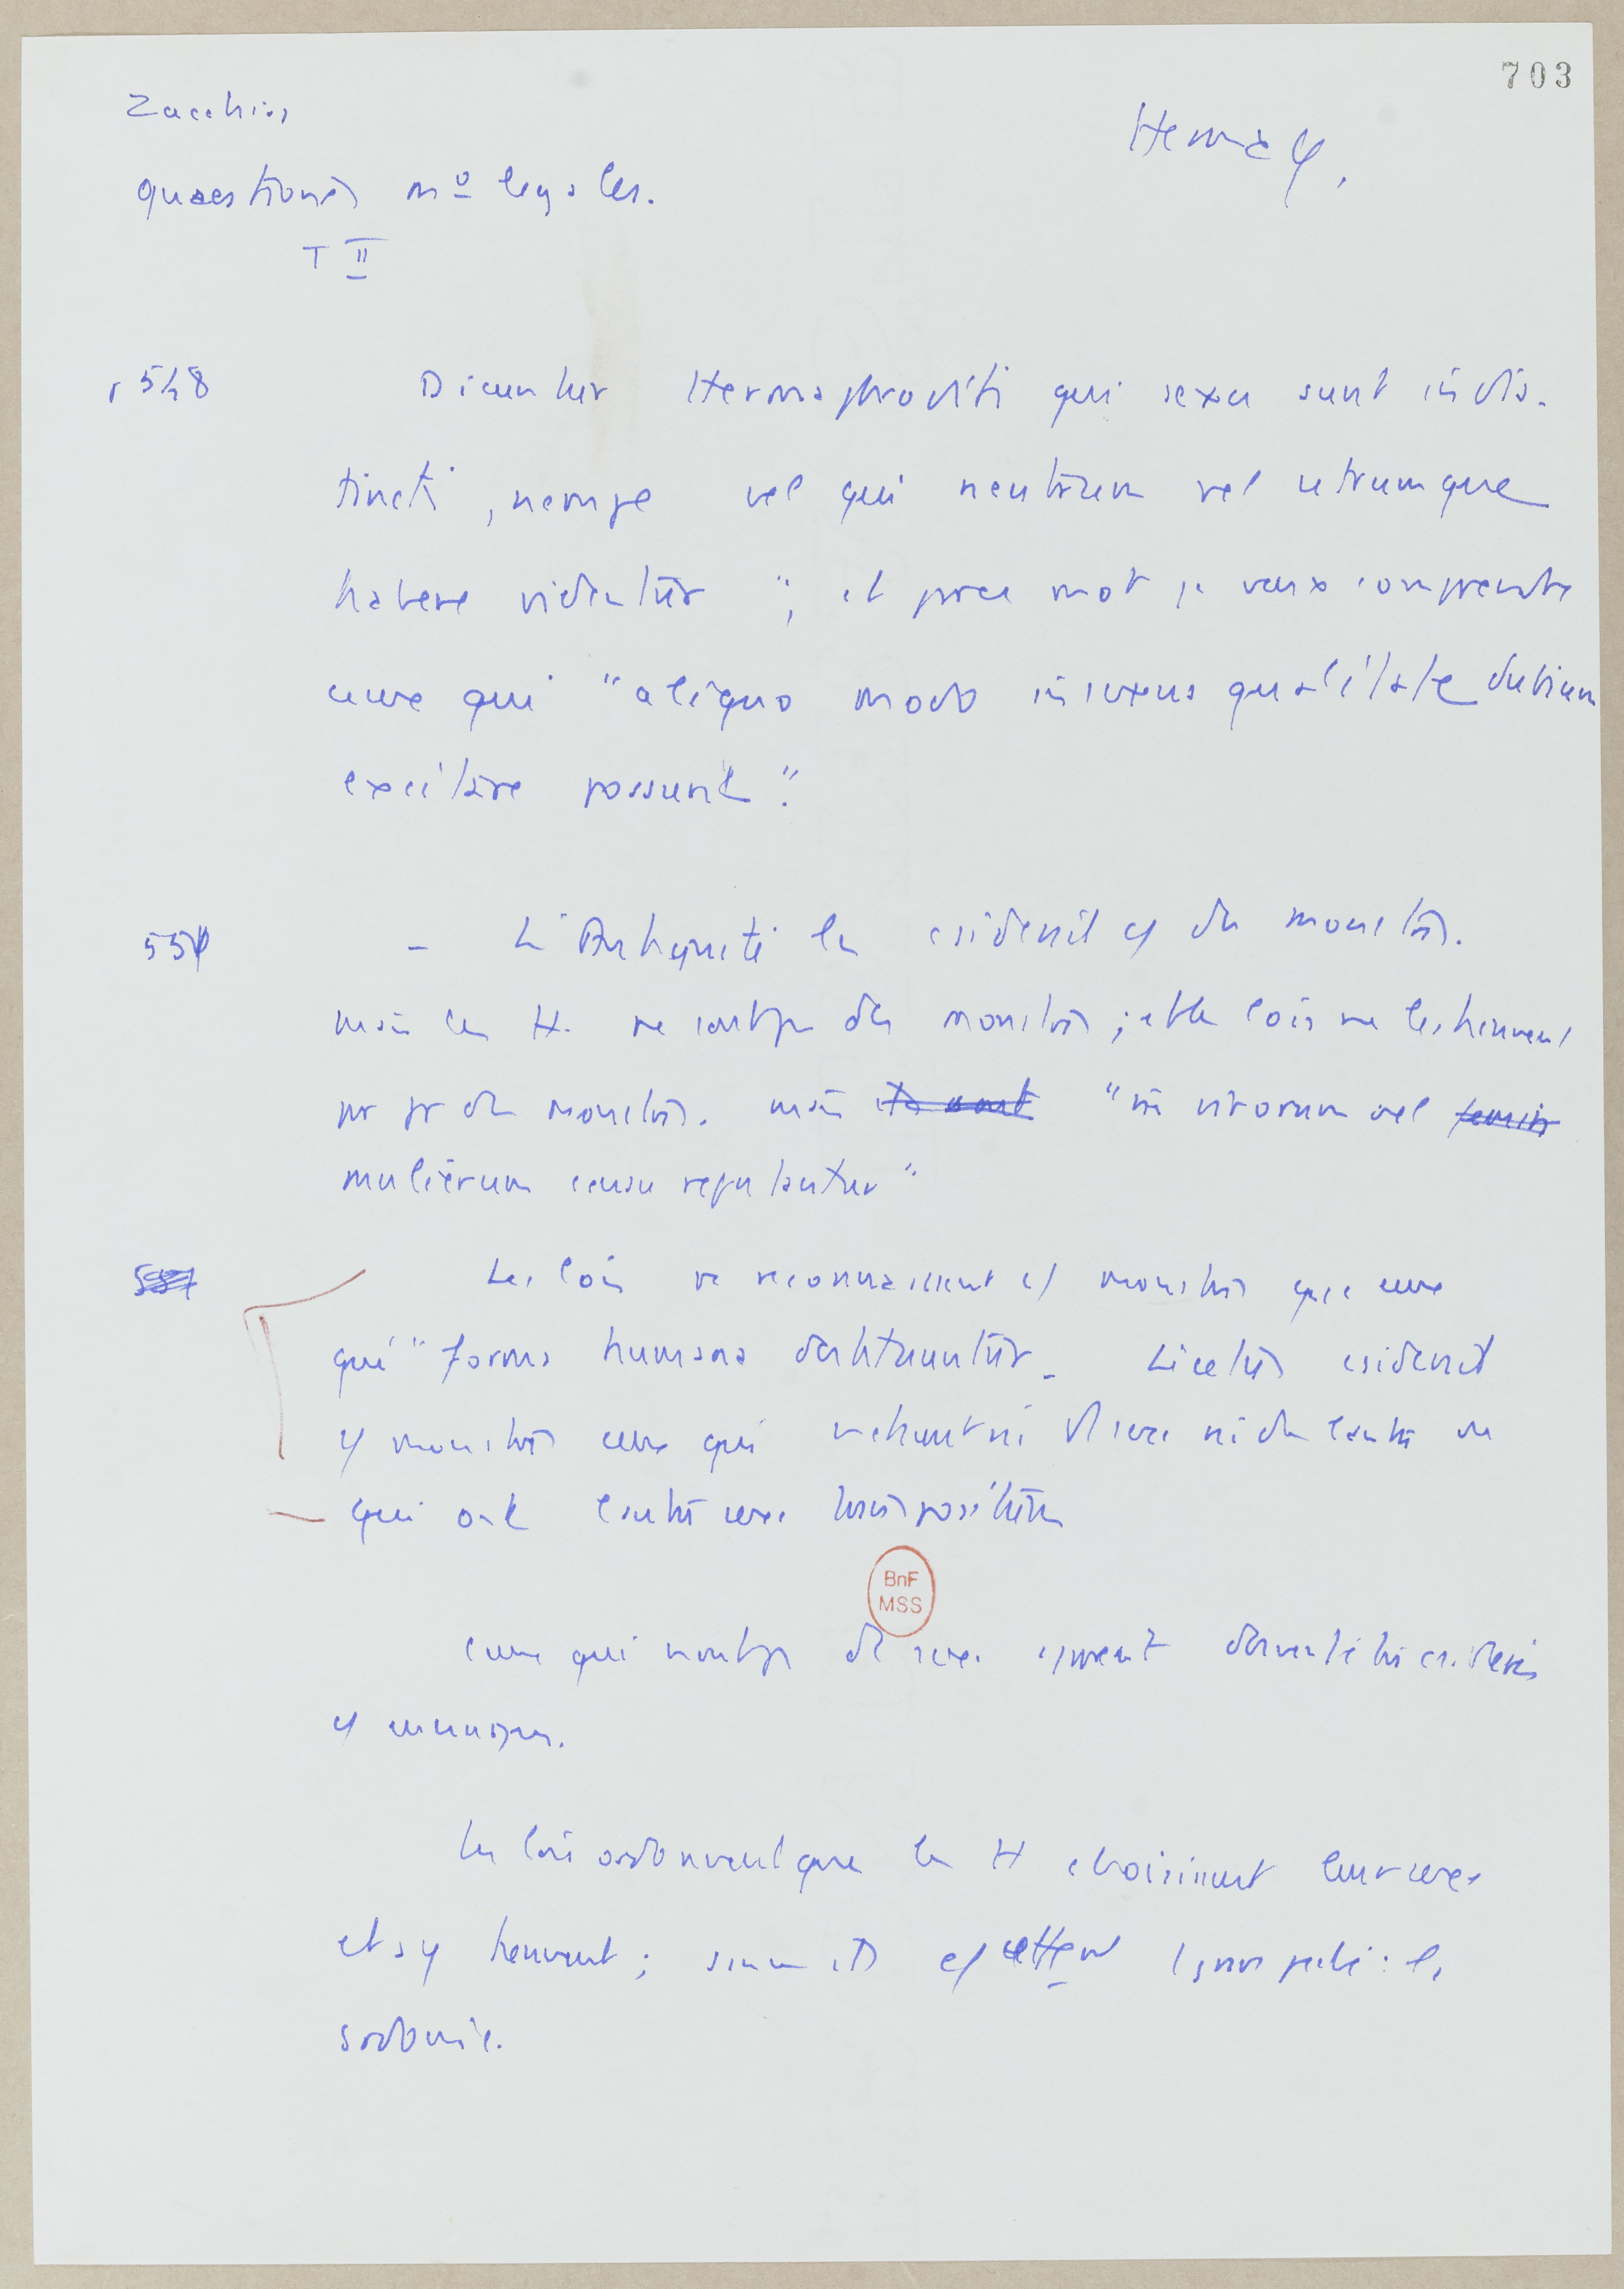 703
Zacchias
Hermaφ.
Quaestiones mº legales.
T II
p 548 Dicuntur Hermaphroditi qui sexu sunt indis-
tincti, nempe vel qui neutrum vel utrumque
habere videntur "; et par ce mot je veux comprendre
ceux qui "aliquo modo in sexus qualitate dubium
excitare possunt".
551 - L'Antiquité les considérait cō des monstres.
mais les H. ne sont pas des monstres ; et les lois ne les tiennent
pas pr des monstres. mais "in virorum vel
mulierum censu reputantur"
Les lois ne reconnaissent cō monstres que ceux
qui "forma humana destituuntur. Licetus considérait
cō monstres ceux qui n'étaient ni d'un sexe ni de l'autre ou
qui ont l'autre sexe
BnF
MSS
ceux qui n'ont pas de sexe apparent doivent être considérés
cō
Les lois ordonnent que les H choisissent leur sexe
et s'y tiennent ; sinon ils
sodomie.